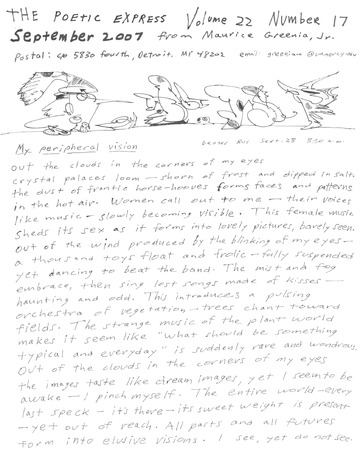 THE POETIC EXPRESS Volume 22 Number 17
September 2007 from Maurice Greenia, Jr.
Postal: 5830 fourth, Detroit. MI 48202 email:
My peripheral vision Sept. 28
out the clouds in the corners of my eyes
crystal palaces loom - shorn of frost and dipped in salt.
the dust of frantic horse-hooves forms faces and patterns
in the hot air. Women call out to me - their voices
like music - slowly becoming visible. This female music
sheds its sex as it forms into lovely pictures, barely seen.
Out of the wind produced by the blinking of my eyes -
a thousand toys float and frolic - fully suspended
yet dancing to beat the band. The mist and fog
embrace, then sing lost songs made of kisses -
haunting and odd. This introduces a pulsing
orchestra of vegetation - trees chant toward
fields. The strange music of the plant world
makes it seem like "what should be something
typical and everyday" is suddenly rare and wondrous.
Out of the clouds in the corners of my eyes
the images taste like dream images, yet I seem to be
awake - I pinch myself. The entire world - every
last speck - it's there - its sweet weight is present
- yet out of reach. All parts and all futures
form into elusive visions. I see, yet do not see.